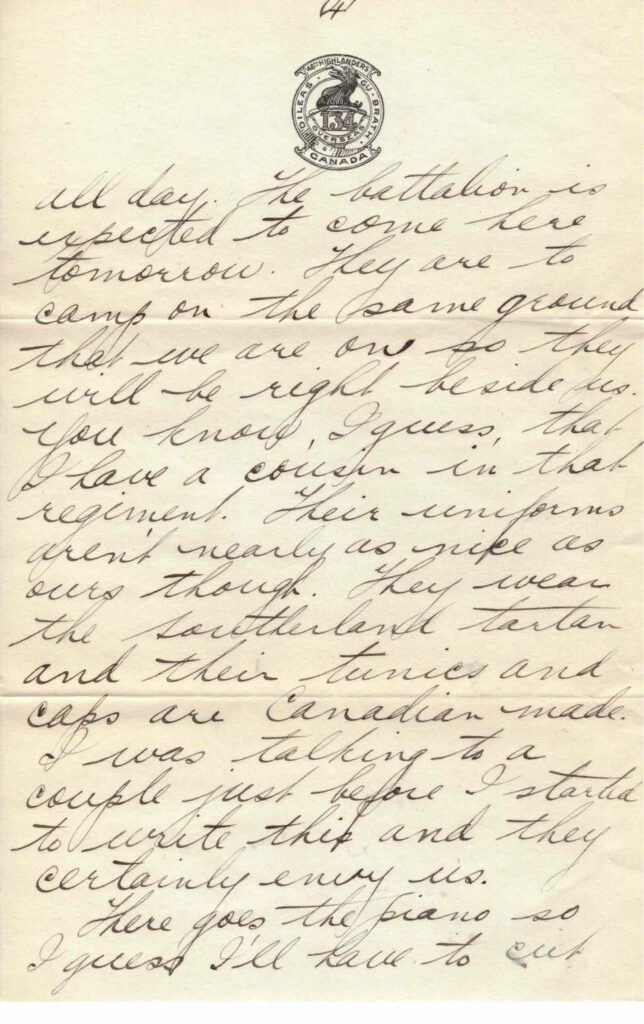 4
48TH HIGHLANDERS
DILEAS GU BRATH
134
OVERSEAS
CANADA
all day. The battalion is
expected to come here
tomorrow. They are to
camp on the same ground
that we are on so they
will be right beside us.
You know, I guess, that
I have a cousin in that
regiment. Their uniforms
aren't nearly as nice as
ours though. They wear
the Southerland tartan
and their tunics and
caps are Canadian made.
I was talking to a
couple just before I started
to write this and they
certainly envy us.
There goes the piano so
I guess I'll have to cut